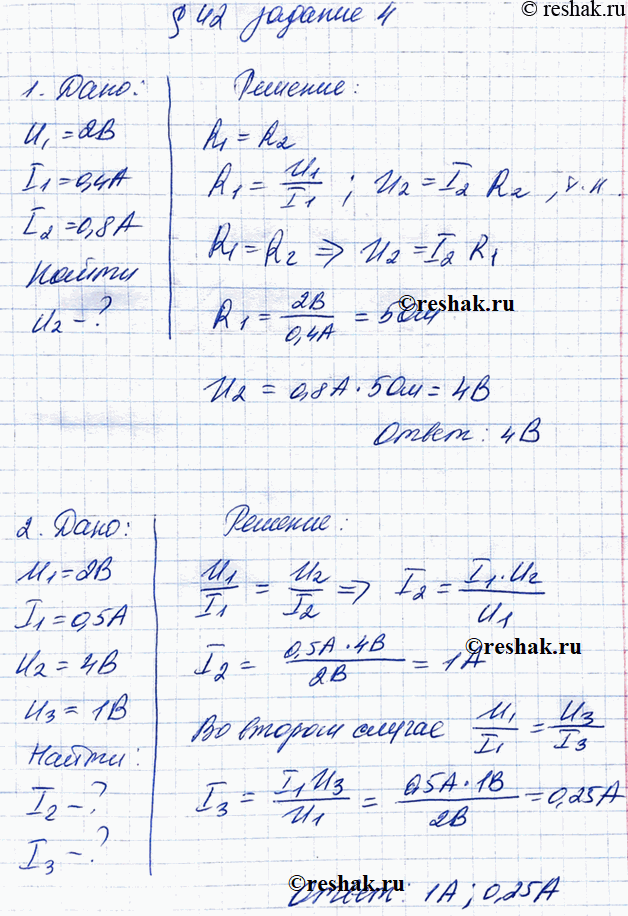 ©reshak.ru
§ 42 задание 4
1. Дано:
U₁ = 2В
I₁ = 0,4А
I₂ = 0,8А
Найти
U₂ - ?
Решение:
R₁ = R₂
R₁ = U₁/I₁ ; U₂ = I₂ R₂ , т.к.
R₁ = R₂ ⇒ U₂ = I₂ R₁
©reshak.ru
R₁ = 2В/0,4А = 5Ом
U₂ = 0,8А · 5Ом = 4В
Ответ: 4В
2. Дано:
U₁ = 2В
I₁ = 0,5А
U₂ = 4В
U₃ = 1В
Найти:
I₂ - ?
I₃ - ?
Решение:
U₁/I₁ = U₂/I₂ ⇒ I₂ = I₁·U₂/U₁
©reshak.ru
I₂ = 0,5А · 4В/2В = 1А
Во втором случае U₁/I₁ = U₃/I₃
I₃ = I₁ U₃/U₁ = 0,5А · 1В/2В = 0,25А
©reshak.ru
Ответ: 1А ; 0,25А